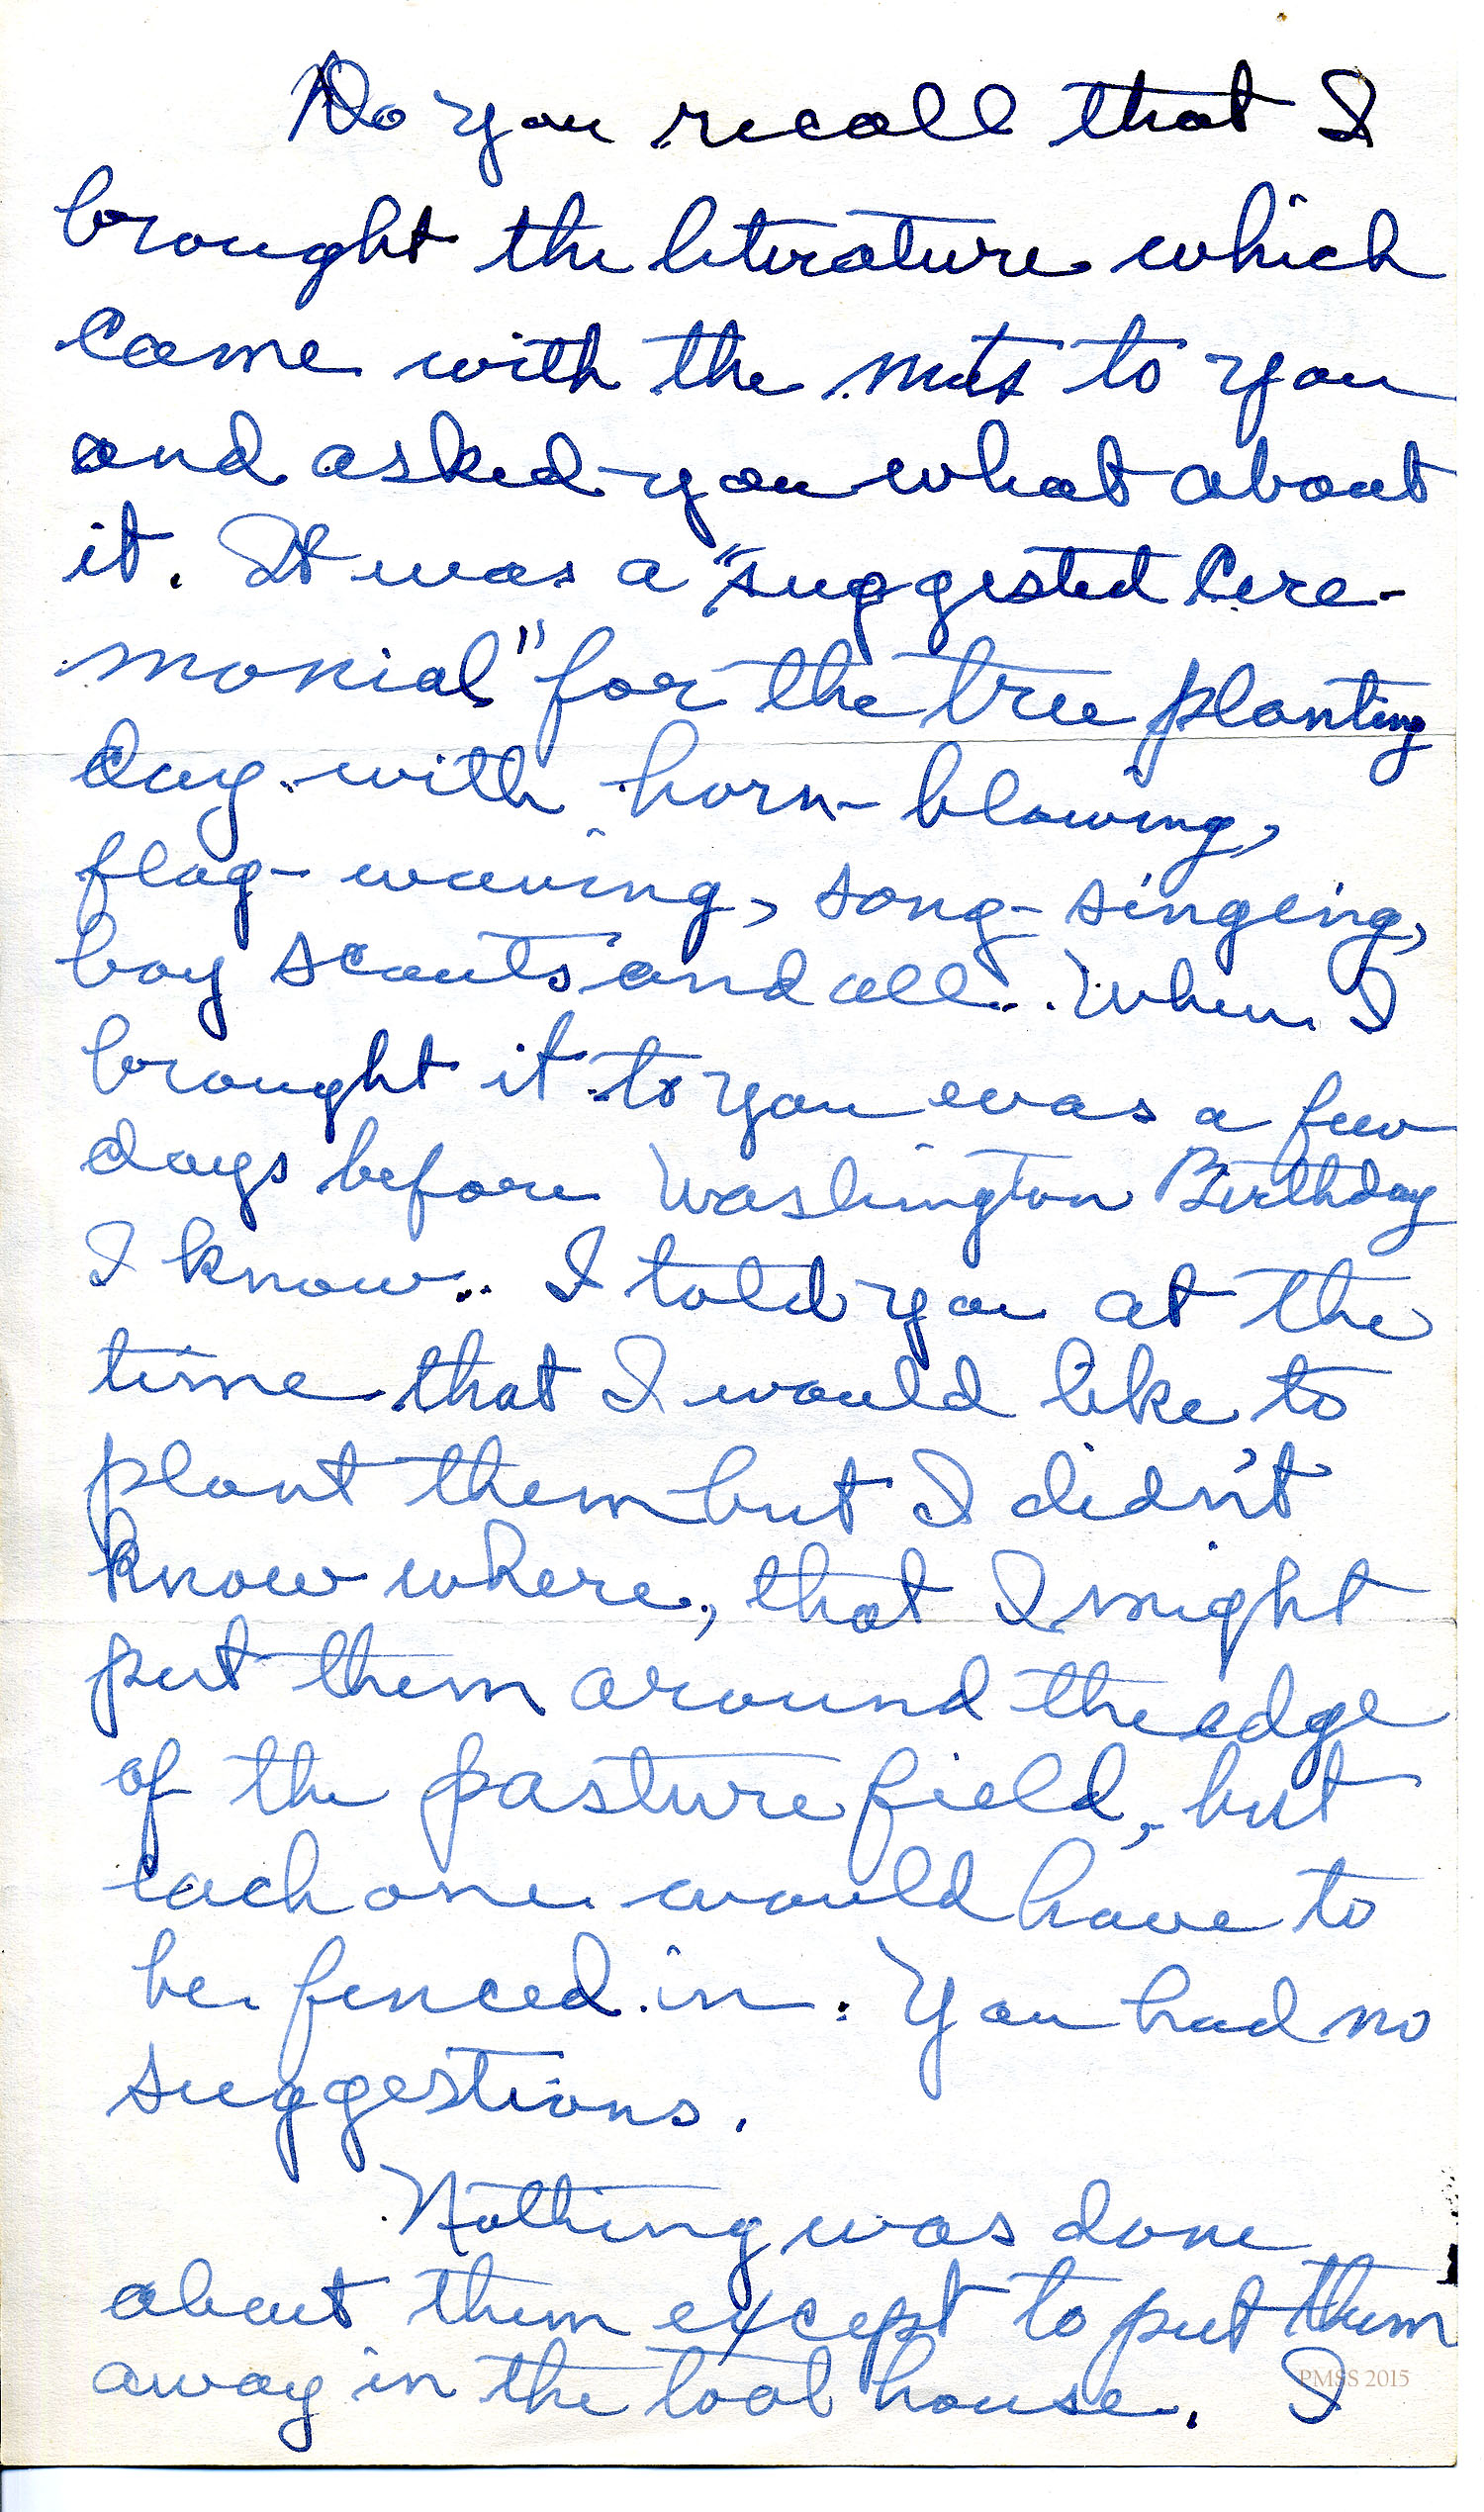 Do you recall that I
brought the literature which
came with the nuts to you
and asked you what about
it. It was a "suggested Cere-
monial" for the tree planting
day with horn-blowing,
flag-waving, song-singing,
boy scouts and all. When I
brought it to you was a few
days before Washington Birthday
I know. I told you at the
time that I would like to
plant them but I didn't
know where, that I might
put them around the edge
of the pasture field, but
each one would have to
be fenced in. You had no
suggestions.
Nothing was done
about them except to put them
away in the tool house. I
PMSS 2015